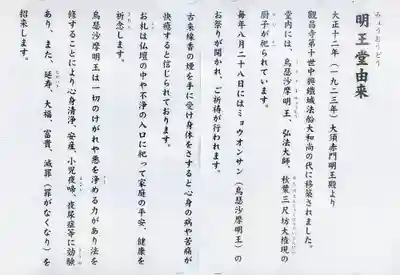 みょうおうどう
明王堂由来
大正十二年(一九二三年)大須赤門明王殿より
観昌寺第十世中興鐵城法船大和尚の代に移築されました。
堂内には、烏瑟沙摩明王、弘法大師、秋葉三尺坊大権現の
厨子が祀られています。
毎年八月二十八日にはミョウオンサン(烏瑟沙摩明王)の
お祭りが開かれ、ご祈祷が行われます。
古来線香の煙を手に受け身体をさすると心身の病や苦痛が
快癒すると信じられております。
お札は仏壇の中や不浄の入口に祀って家庭の平安、健康を
祈念します。
烏瑟沙摩明王は一切のけがれや悪を浄める力があり法を
修することにより心身清浄、安産、小児夜啼、夜尿症等に効験
あり、また、延寿、大福、富貴、滅罪(罪がなくなり)を
招来します。